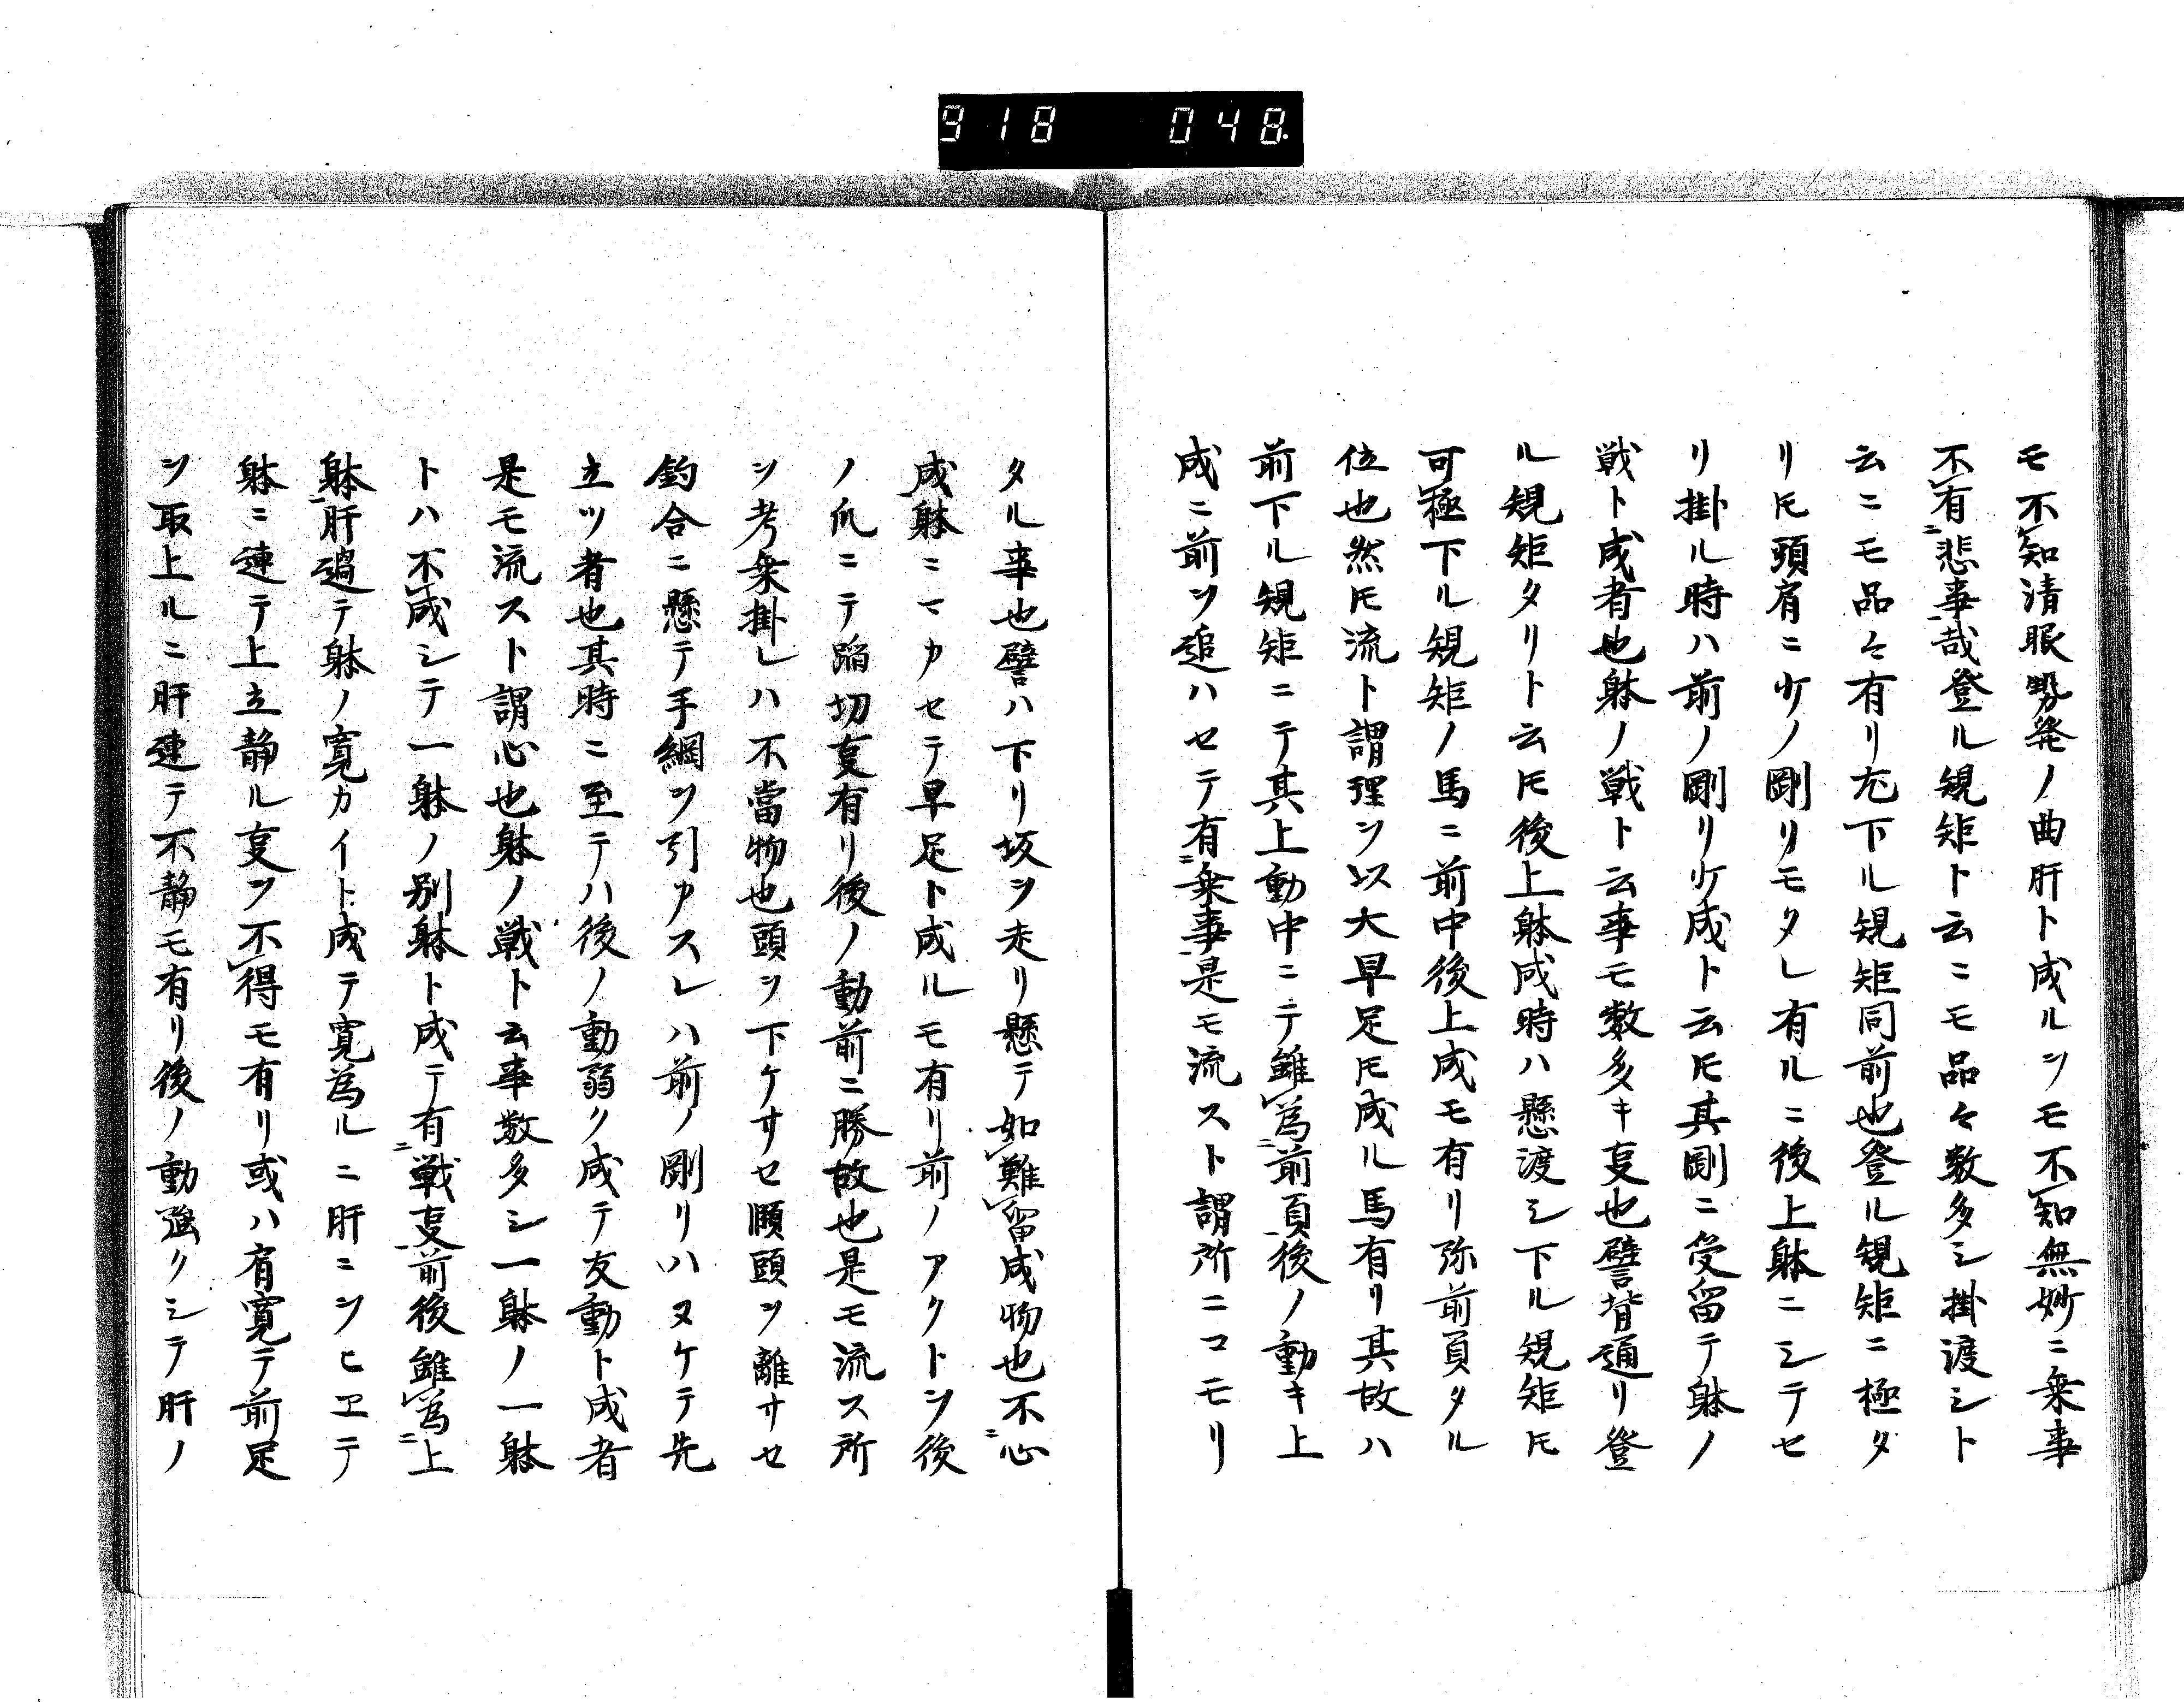 918 048
モ不知清眼勢発ノ曲肝ト成ルヲモ不知無妙ニ乗事
不有悲事哉登ル規矩ト云ニモ品々数多シ掛渡シト
云ニモ品々有リ尤下ル規矩同前也登ル規矩ニ極タ
リ𪜈頭肩ニ少ノ剛リモタレ有ルニ後上躰ニシテセ
リ掛ル時ハ前ノ剛リ少成ト云𪜈其剛ニ受留テ躰ノ
戦ト成者也躰ノ戦ト云事モ数多キ㕝也譬背通リ登
ル規矩タリト云𪜈後上躰成時ハ懸渡シ下ル規矩𪜈
可極下ル規矩ノ馬ニ前中後上成モ有リ弥前負タル
位也然𪜈流ト謂理ヲ以大早足𪜈成ル馬有リ其故ハ
前下ル規矩ニテ其上動中ニテ雖為前負後ノ動キ上
成ニ前ヲ追ハセテ有乗事是モ流スト謂所ニコモリ
タル事也譬ハ下リ坂ヲ走リ懸テ如難留成物也不心
成躰ニマカセテ早足ト成ルモ有リ前ノアクトヲ後
ノ爪ニテ踏切㕝有リ後ノ動前ニ勝故也是モ流ス所
ヲ考乗掛レハ不當物也頭ヲ下ケサセ顋頭ヲ離サセ
釣合ニ懸テ手綱ヲ引カスレハ前ノ剛リハヌケテ先
立ツ者也其時ニ至テハ後ノ動弱ク成テ友動ト成者
是モ流スト謂心也躰ノ戦ト云事数多シ一躰ノ一躰
トハ不成シテ一躰ノ別躰ト成テ有戦㕝前後雖為上
躰肝過テ躰ノ寛カイト成テ寛為ルニ肝ニヲヒヱテ
躰ニ連テ上立静ル㕝ヲ不得モ有リ或ハ肩寛テ前足
ヲ取上ルニ肝連テ不静モ有リ後ノ動強クシテ肝ノ